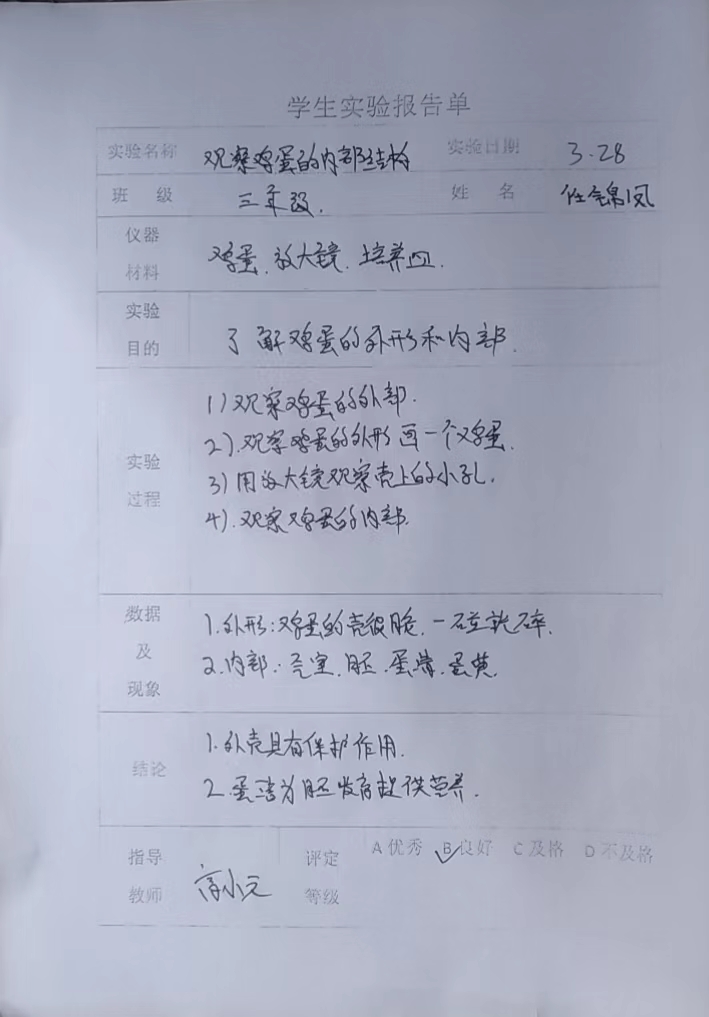 学生实验报告单
实验名称 观察鸡蛋的内部结构 实验日期 3.28
班 级 三年级. 姓 名 任锦凤
仪器
材料
鸡蛋.放大镜.培养皿.
实验
目的
了解鸡蛋的外形和内部.
实验
过程
1)观察鸡蛋的外部.
2).观察鸡蛋的外形画一个鸡蛋.
3)用放大镜观察壳上的小孔.
4).观察鸡蛋的内部.
数据
及
现象
1.外形:鸡蛋的壳很脆.一碰就碎.
2.内部:气室.胚.蛋清.蛋黄.
结论
1.外壳具有保护作用.
2.蛋清为胚发育提供营养.
指导
教师
小元
评定
等级
A优秀 B良好 C及格 D不及格